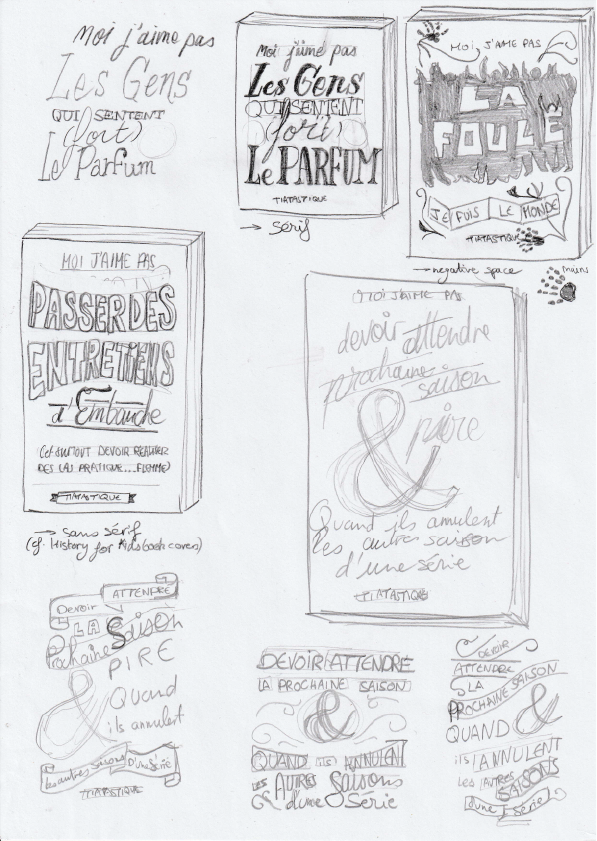 Moi j'aime pas
Les Gens
QUI SENTENT
(fort)
Le Parfum
Moi j'aime pas
Les Gens
QUI SENTENT
(fort)
Le PARFUM
TIATASTIQUE
→ sérif
MOI, J'AIME PAS
LA
FOULE
JE FUIS LE MONDE
TIATASTIQUE
→ negative space
mains
MOI J'AIME PAS
PASSER DES
ENTRETIENS
d'Embauche
(et SURTOUT DEVOIR RÉALISER
DES CAS PRATIQUE...FLEMME)
TIATASTIQUE
→ sans sérif
(cf. History for Kids book covers)
MOI J'AIME PAS
devoir attendre
prochaine saison
& pire
Quand ils annulent
les autres saison
d'une série
TIATASTIQUE
ATTENDRE
Devoir
LA Saison
Prochaine
PIRE
& Quand
ils annulent
les autres saisons D'une Série
TIATASTIQUE
DEVOIR ATTENDRE
LA PROCHAINE SAISON
&
QUAND ILS ANNULENT
LES AUTRES Saisons
d'une Série
DEVOIR
ATTENDRE
LA
PROCHAINE SAISON
QUAND &
ils ANNULENT
les AUTRES SAISONS
d'une série